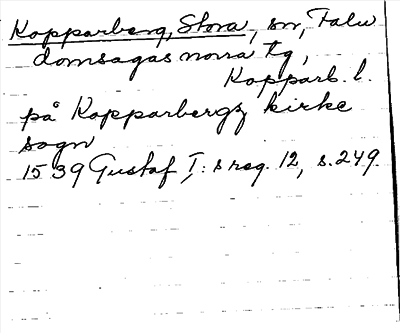 Kopparberg, Stora, sn, Falu
domsagas norra tg,
Kopparb. l.
på Kopparbergz kirke
sogn
1539 Gustaf I:s reg. 12, s. 249.